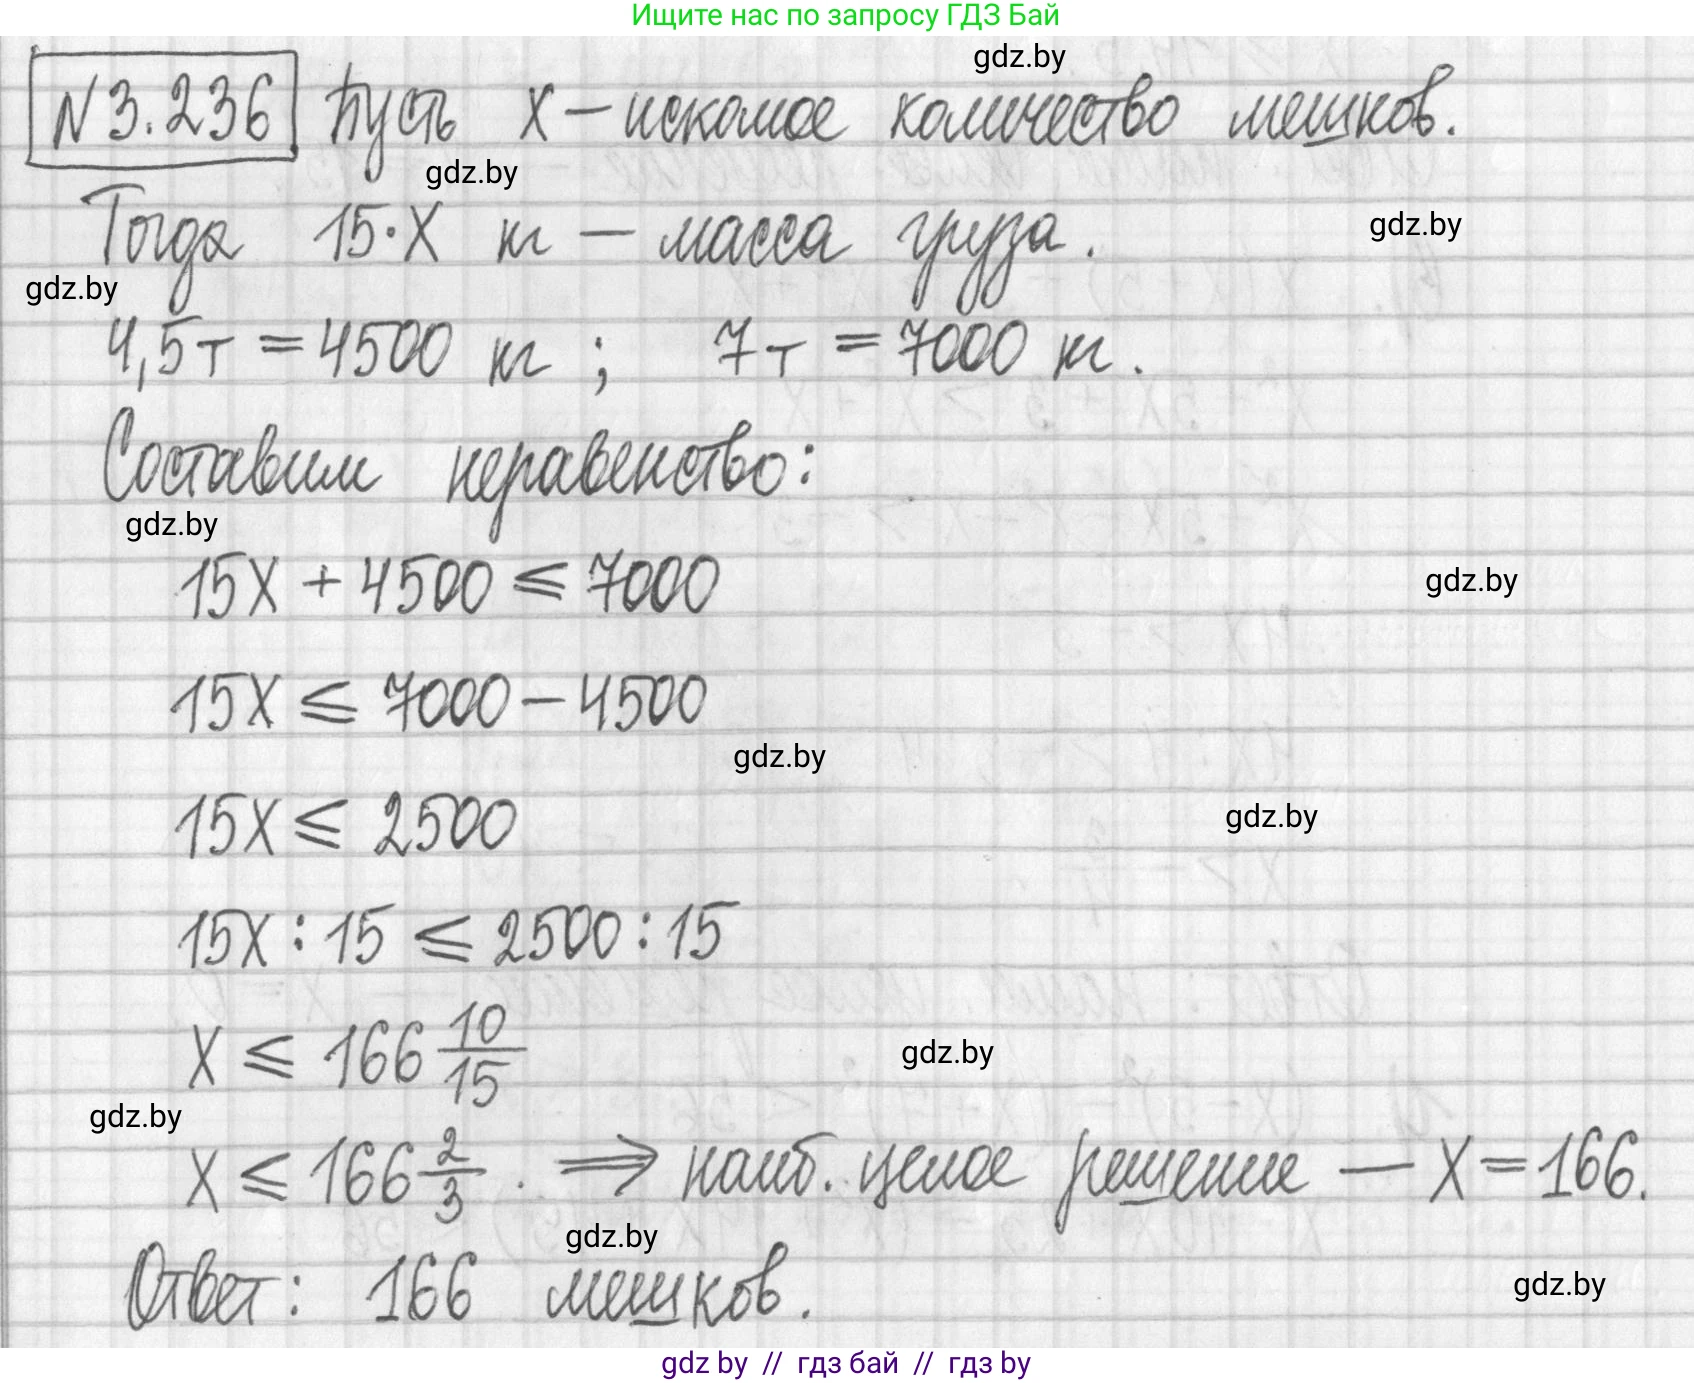 Ищите нас по запросу ГДЗ Бай
gdz.by
N 3.236 Пусть x – искомое количество мешков.
gdz.by
Тогда 15·x кг – масса груза.
gdz.by
gdz.by
4,5т = 4500 кг ; 7т = 7000 кг.
Составим неравенство:
gdz.by
15x + 4500 ⩽ 7000
gdz.by
15x ⩽ 7000 – 4500
gdz.by
15x ⩽ 2500
gdz.by
15x : 15 ⩽ 2500 : 15
x ⩽ 166 10/15
gdz.by
gdz.by
x ⩽ 166 2/3 . ⇒ наиб. целое решение – x = 166.
gdz.by
Ответ: 166 мешков.
gdz.by
gdz by // гдз бай // гдз by